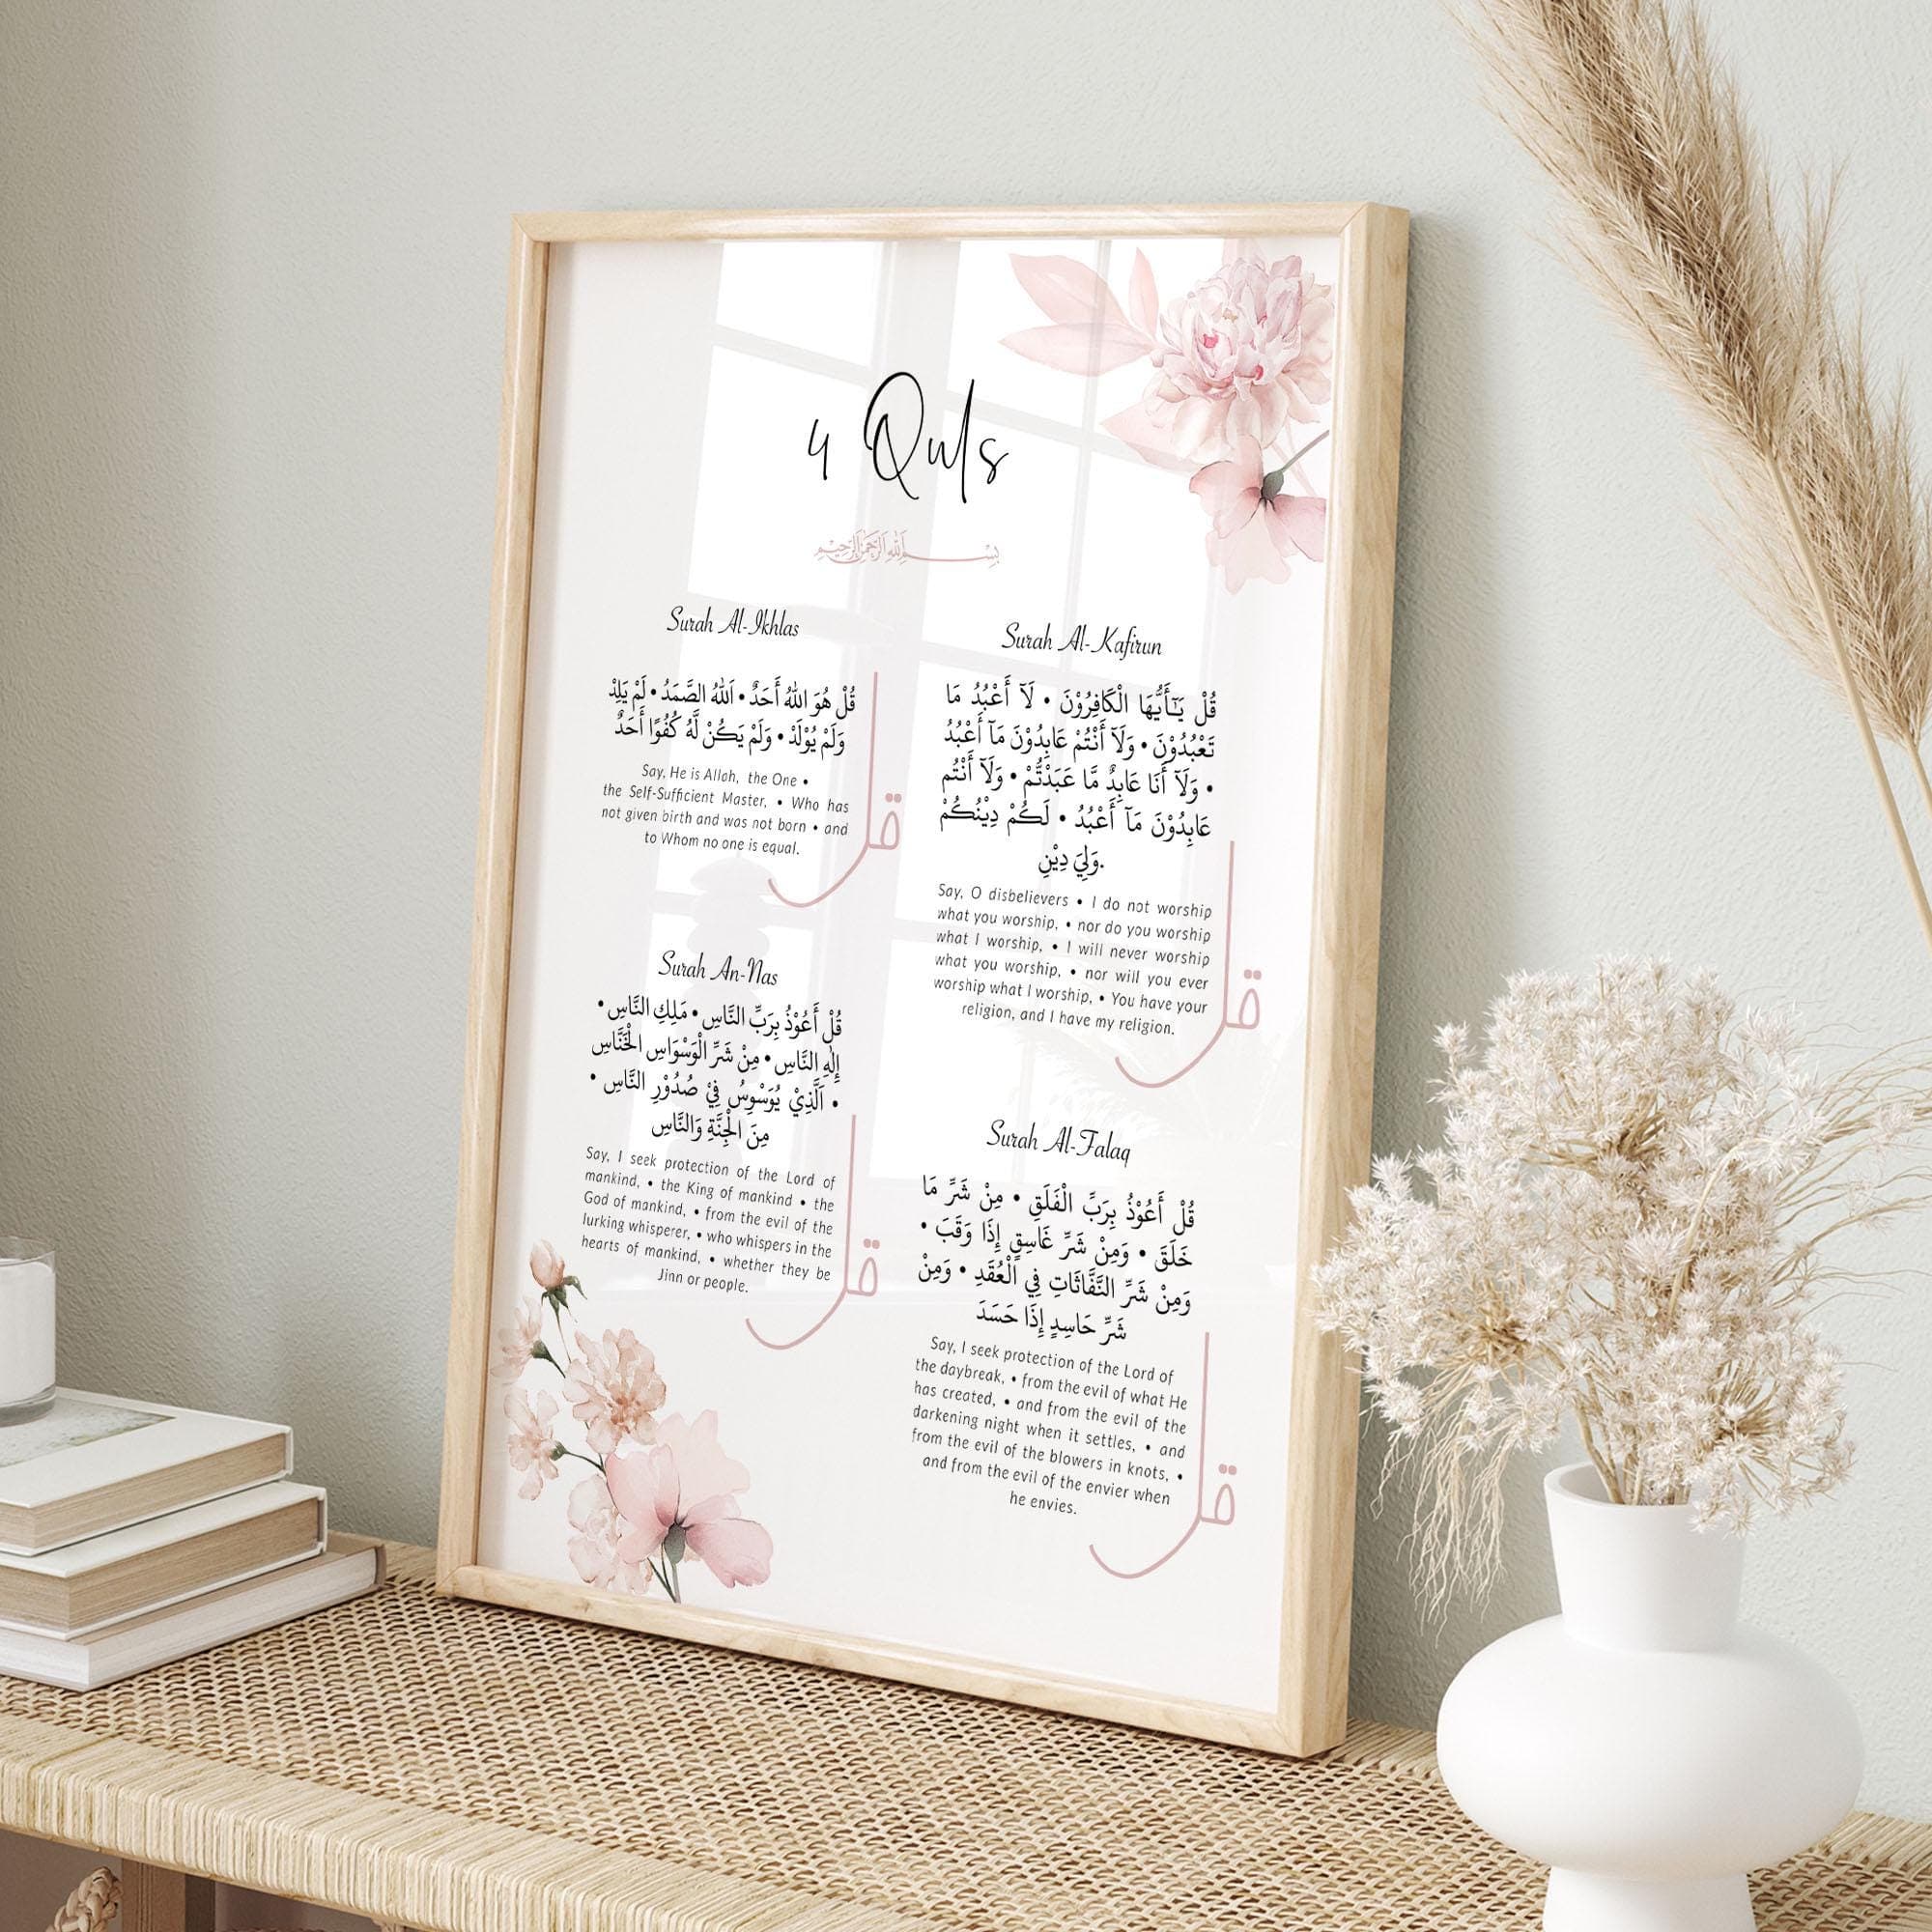 4 Quls
بسم الله الرحمن الرحيم
Surah Al-Ikhlas
قُلْ هُوَ اللهُ أَحَدٌ • اَللهُ الصَّمَدُ • لَمْ يَلِدْ
وَلَمْ يُوْلَدْ • وَلَمْ يَكُنْ لَّهُ كُفُوًا أَحَدٌ
Say, He is Allah, the One •
the Self-Sufficient Master, • Who has
not given birth and was not born • and
to Whom no one is equal.
قل
Surah Al-Kafirun
قُلْ يَـٰٓأَيُّهَا الْكَافِرُوْنَ • لَآ أَعْبُدُ مَا
تَعْبُدُوْنَ • وَلَآ أَنْتُمْ عَابِدُوْنَ مَآ أَعْبُدُ
• وَلَآ أَنَا عَابِدٌ مَّا عَبَدْتُّمْ • وَلَآ أَنْتُم
عَابِدُوْنَ مَآ أَعْبُدُ • لَكُمْ دِيْنُكُمْ
وَلِيَ دِيْنِ.
Say, O disbelievers • I do not worship
what you worship, • nor do you worship
what I worship, • I will never worship
what you worship, • nor will you ever
worship what I worship, • You have your
religion, and I have my religion.
قل
Surah An-Nas
قُلْ أَعُوْذُ بِرَبِّ النَّاسِ • مَلِكِ النَّاسِ •
إِلٰهِ النَّاسِ • مِنْ شَرِّ الْوَسْوَاسِ الْخَنَّاسِ
• اَلَّذِيْ يُوَسْوِسُ فِيْ صُدُوْرِ النَّاسِ •
مِنَ الْجِنَّةِ وَالنَّاسِ
Say, I seek protection of the Lord of
mankind, • the King of mankind • the
God of mankind, • from the evil of the
lurking whisperer, • who whispers in the
hearts of mankind, • whether they be
Jinn or people.
قل
Surah Al-Falaq
قُلْ أَعُوْذُ بِرَبِّ الْفَلَقِ • مِنْ شَرِّ مَا
خَلَقَ • وَمِنْ شَرِّ غَاسِقٍ إِذَا وَقَبَ •
وَمِنْ شَرِّ النَّفَّاثَاتِ فِي الْعُقَدِ • وَمِنْ
شَرِّ حَاسِدٍ إِذَا حَسَدَ
Say, I seek protection of the Lord of
the daybreak, • from the evil of what He
has created, • and from the evil of the
darkening night when it settles, • and
from the evil of the blowers in knots, •
and from the evil of the envier when
he envies.
قل